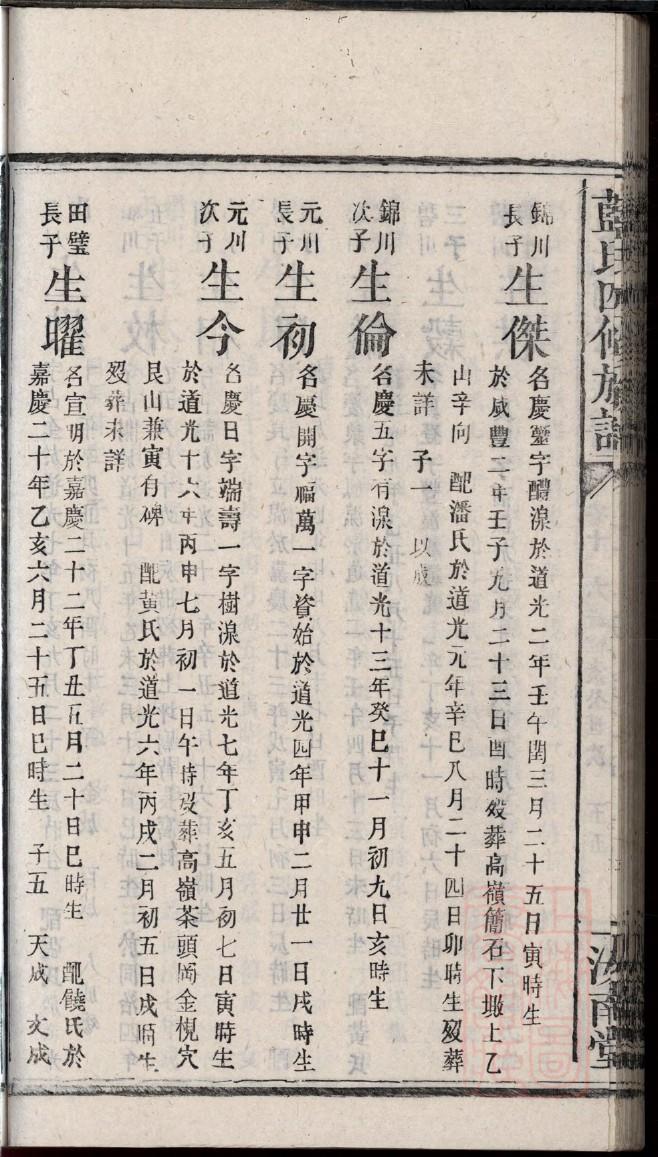 藍氏四修族譜
汝南堂
錦川長子
生傑
名慶靈字醴湶於道光二年壬午閏三月二十五日寅時生
於咸豐二年壬子九月二十三日酉時歿葬高嶺簡石下塅上乙
山辛向 配潘氏於道光元年辛巳八月二十四日卯時生歿葬
未詳 子一 以成
錦川次子
生倫
名慶五字有湶於道光十三年癸巳十一月初九日亥時生
元川長子
生初
名慶開字福萬一字資始於道光四年甲申二月廿一日戌時生
元川次子
生今
名慶日字端壽一字樹湶於道光七年丁亥五月初七日寅時生
於道光十六年丙申七月初一日午時歿葬高嶺茶頭窩金梘穴
艮山兼寅有碑 配黃氏於道光六年丙戌二月初五日戌時生
歿葬未詳
田璧長子
生曜
名宣明於嘉慶二十二年丁丑五月二十日巳時生 配饒氏於
嘉慶二十年乙亥六月二十五日巳時生 子五 天成 文成